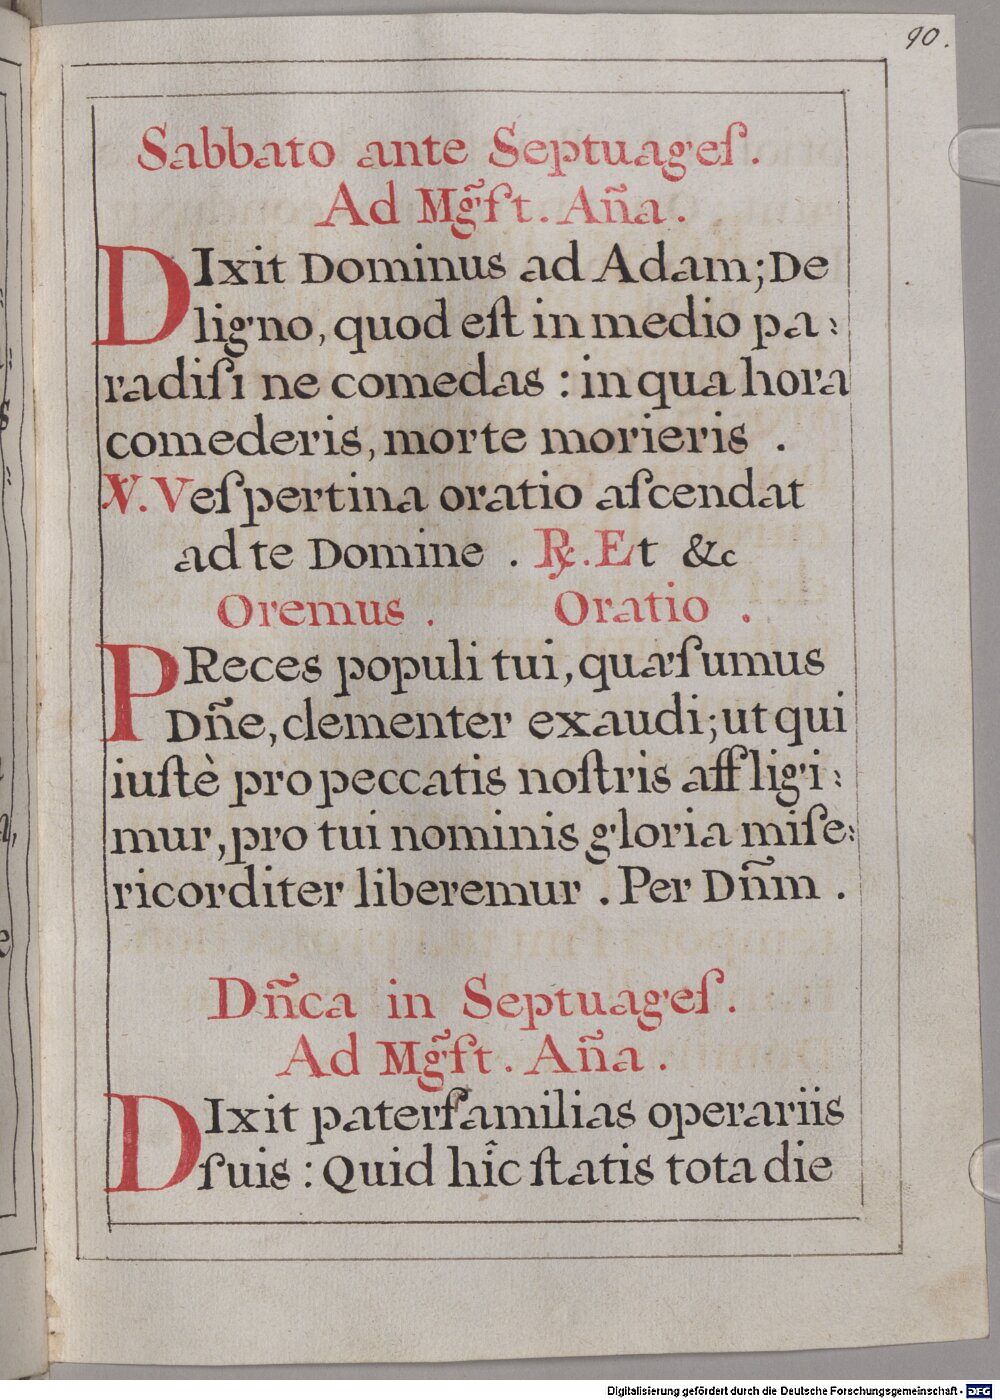 90.
Sabbato ante Septuageſ.
Ad Mg̃ſt. Aña.
DIxit Dominus ad Adam; De
ligno, quod eſt in medio pa:
radiſi ne comedas : in qua hora
comederis, morte morieris .
℣. Veſpertina oratio aſcendat
ad te Domine . ℟. Et &c
Oremus . Oratio .
PReces populi tui, quæſumus
Dñe, clementer exaudi; ut qui
iuſtè pro peccatis noſtris affligi:
mur, pro tui nominis gloria miſe:
ricorditer liberemur . Per Dñm .
Dñca in Septuageſ.
Ad Mg̃ſt. Aña .
DIxit paterfamilias operariis
ſuis : Quid hîc ſtatis tota die
Digitalisierung gefördert durch die Deutsche Forschungsgemeinschaft - DFG